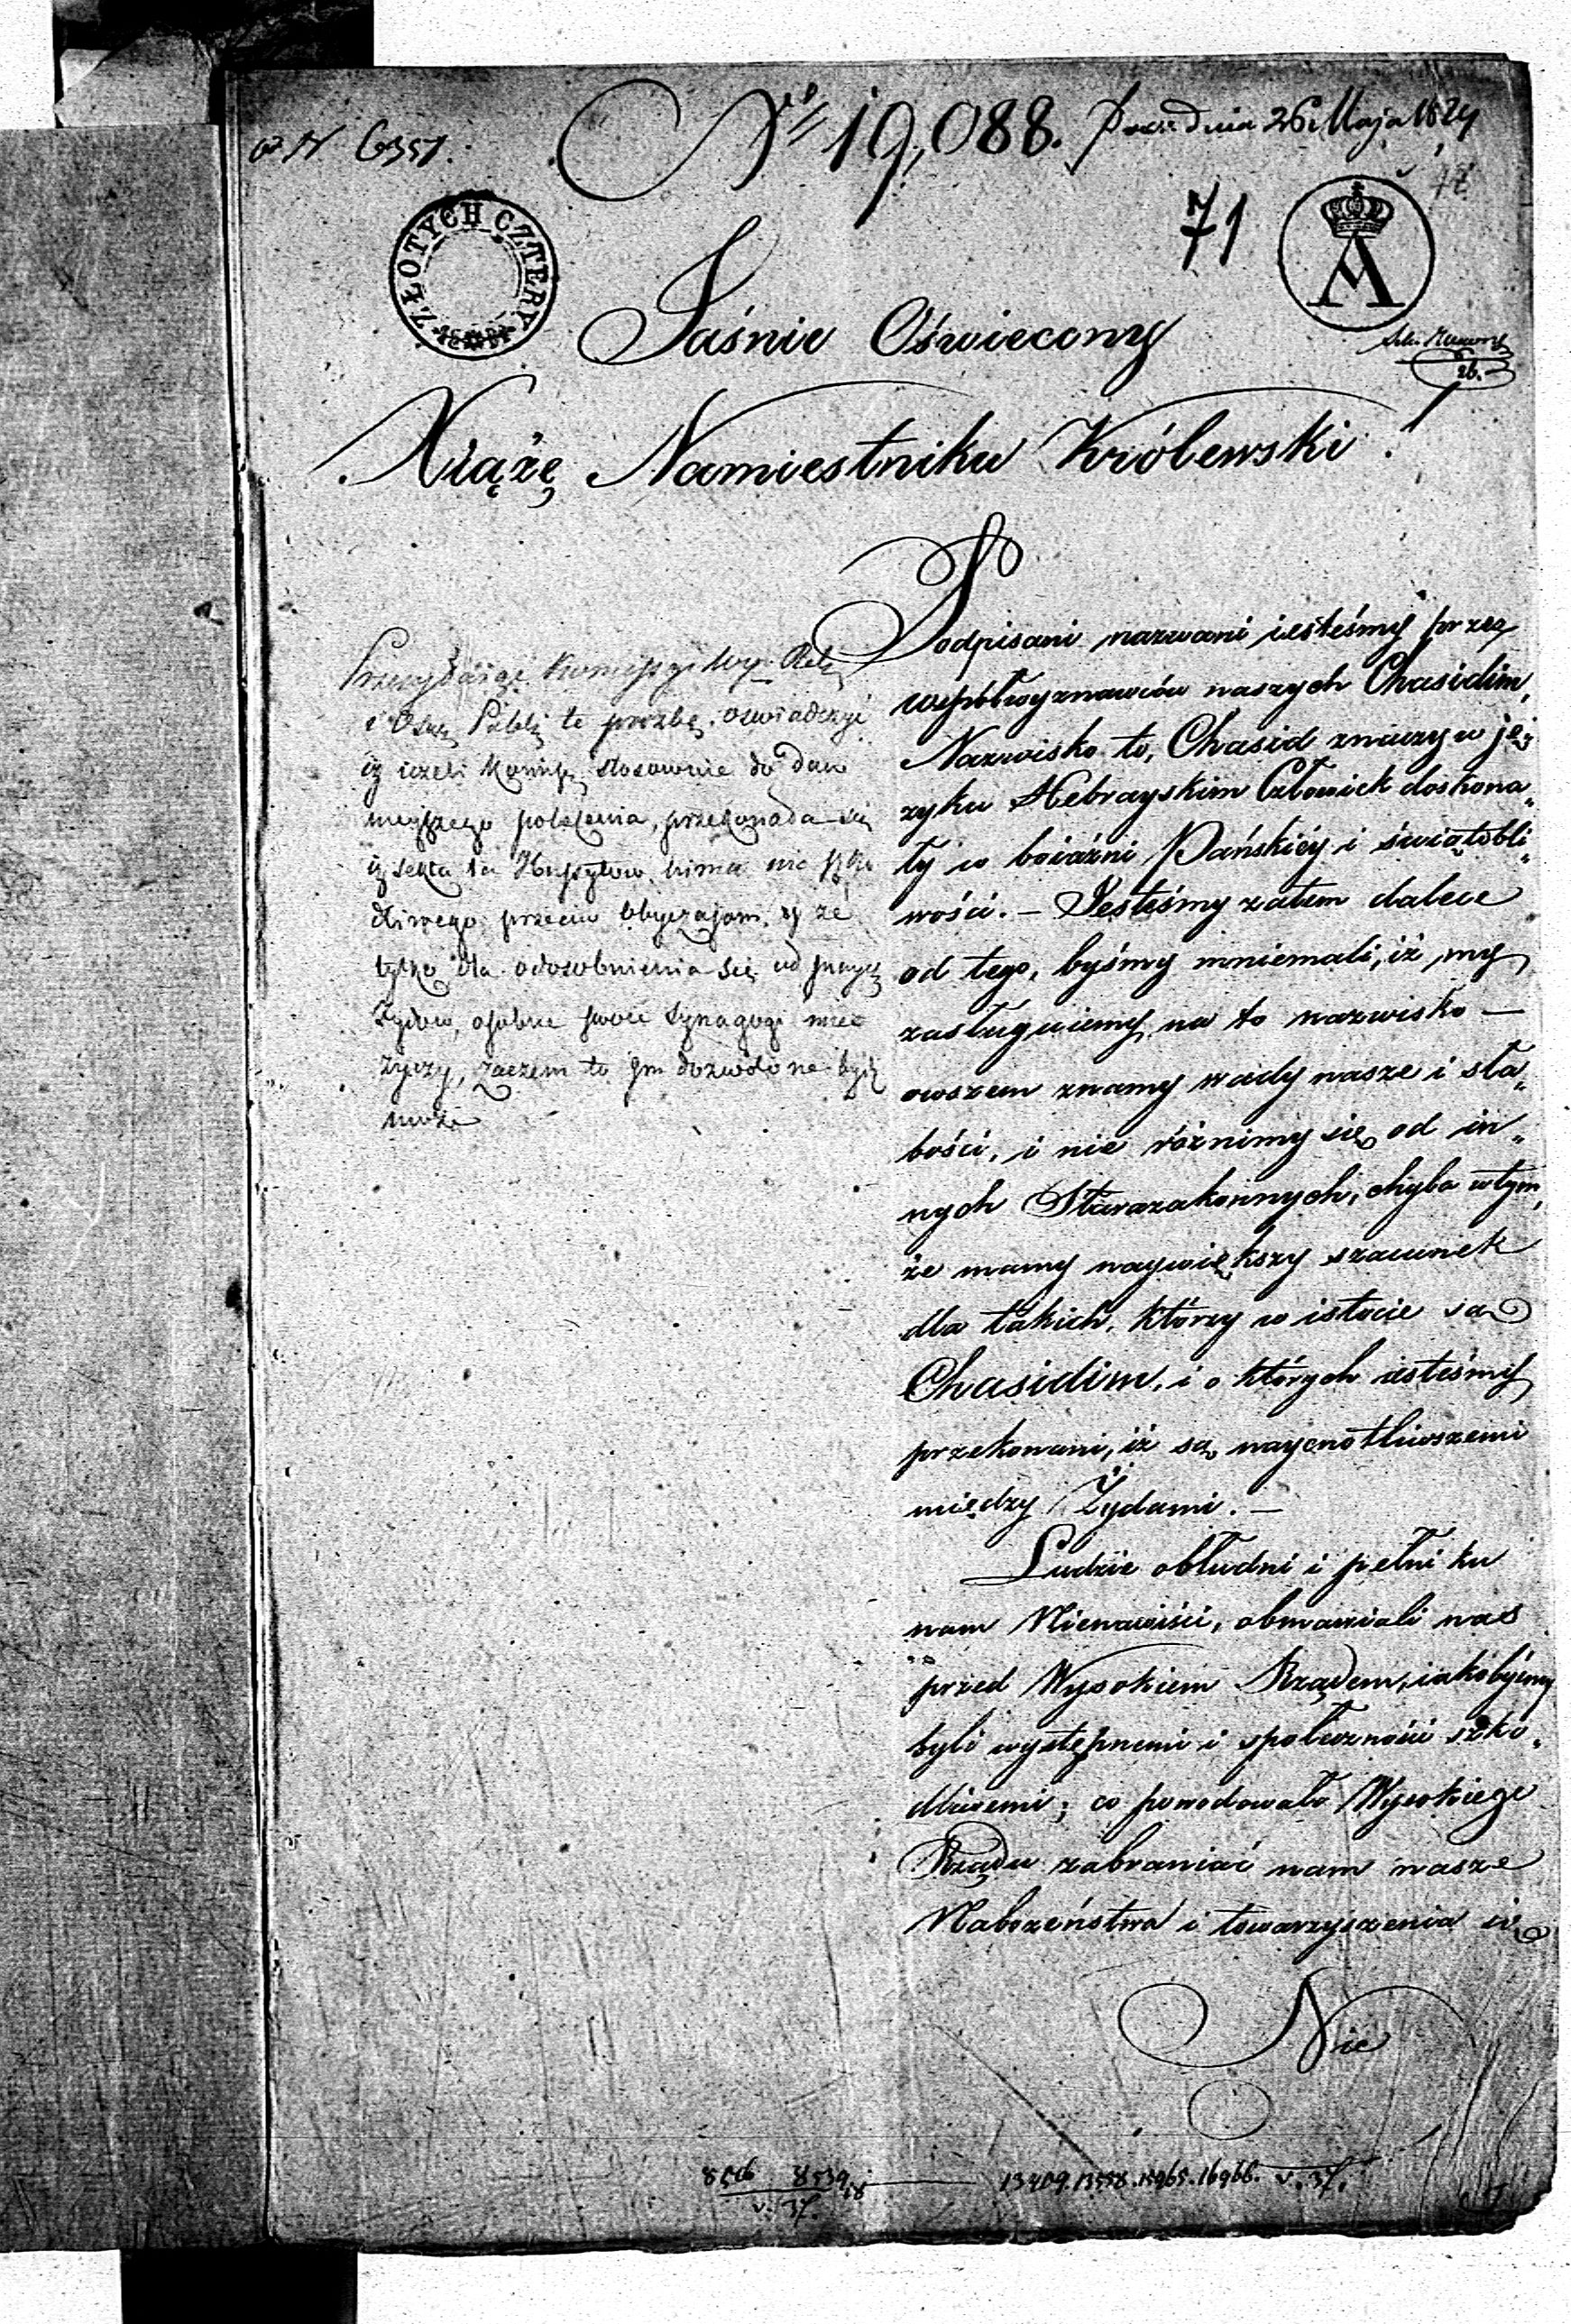 N 6357.
Nro 19,088. dnia 26 Maja 1824
71
ZŁOTYCH CZTERY
A
26.
Jaśnie Oświecony
Xiążę Namiestniku Królewski!
Podpisani nazwani iesteśmy przez
współwyznawców naszych Chasidim,
Nazwisko to, Chasid znaczy w ję„
zyku Hebrayskim Człowiek doskona„
ły w boiaźni Pańskiéy i świątobli„
wości. – Jesteśmy zatem dalece
od tego, byśmy mniemali, iż my
zasługuiemy na to nazwisko –
owszem znamy wady nasze i sła„
bości, i nie różnimy się od in„
nych Starozakonnych, chyba w tym,
że mamy naywiększy szacunek
dla takich, którzy w istocie są
Chasidim, i o których iesteśmy
przekonani, iż są naycnotliwszemi
między Żydami. –
Ludzie obłudni i pełni ku
nam Nienawiści, obmawiali nas
przed Wysokiem Rządem, iakobyśmy
byli występnemi i społeczności szko„
dliwemi; co powodowało Wysokiego
Rządu zabraniać nam nasze
Nabożeństwa i towarzyszenia się
Nie
te prośbę, oświadczyć
iż ieżeli stosownie do daw
nieyszego polecenia, przekonała się
iż sekta ta Hussytów, nima nic szko
dliwego przeciw obyczajom, y że
tylko dla odosobnienia się od innych
Żydów, osobne swoie Synagogi mieć
życzy, zaczem to im dozwolone być
może
8526 8539
v. 37.
13409. 13558. 15965. 16966. v. 37.